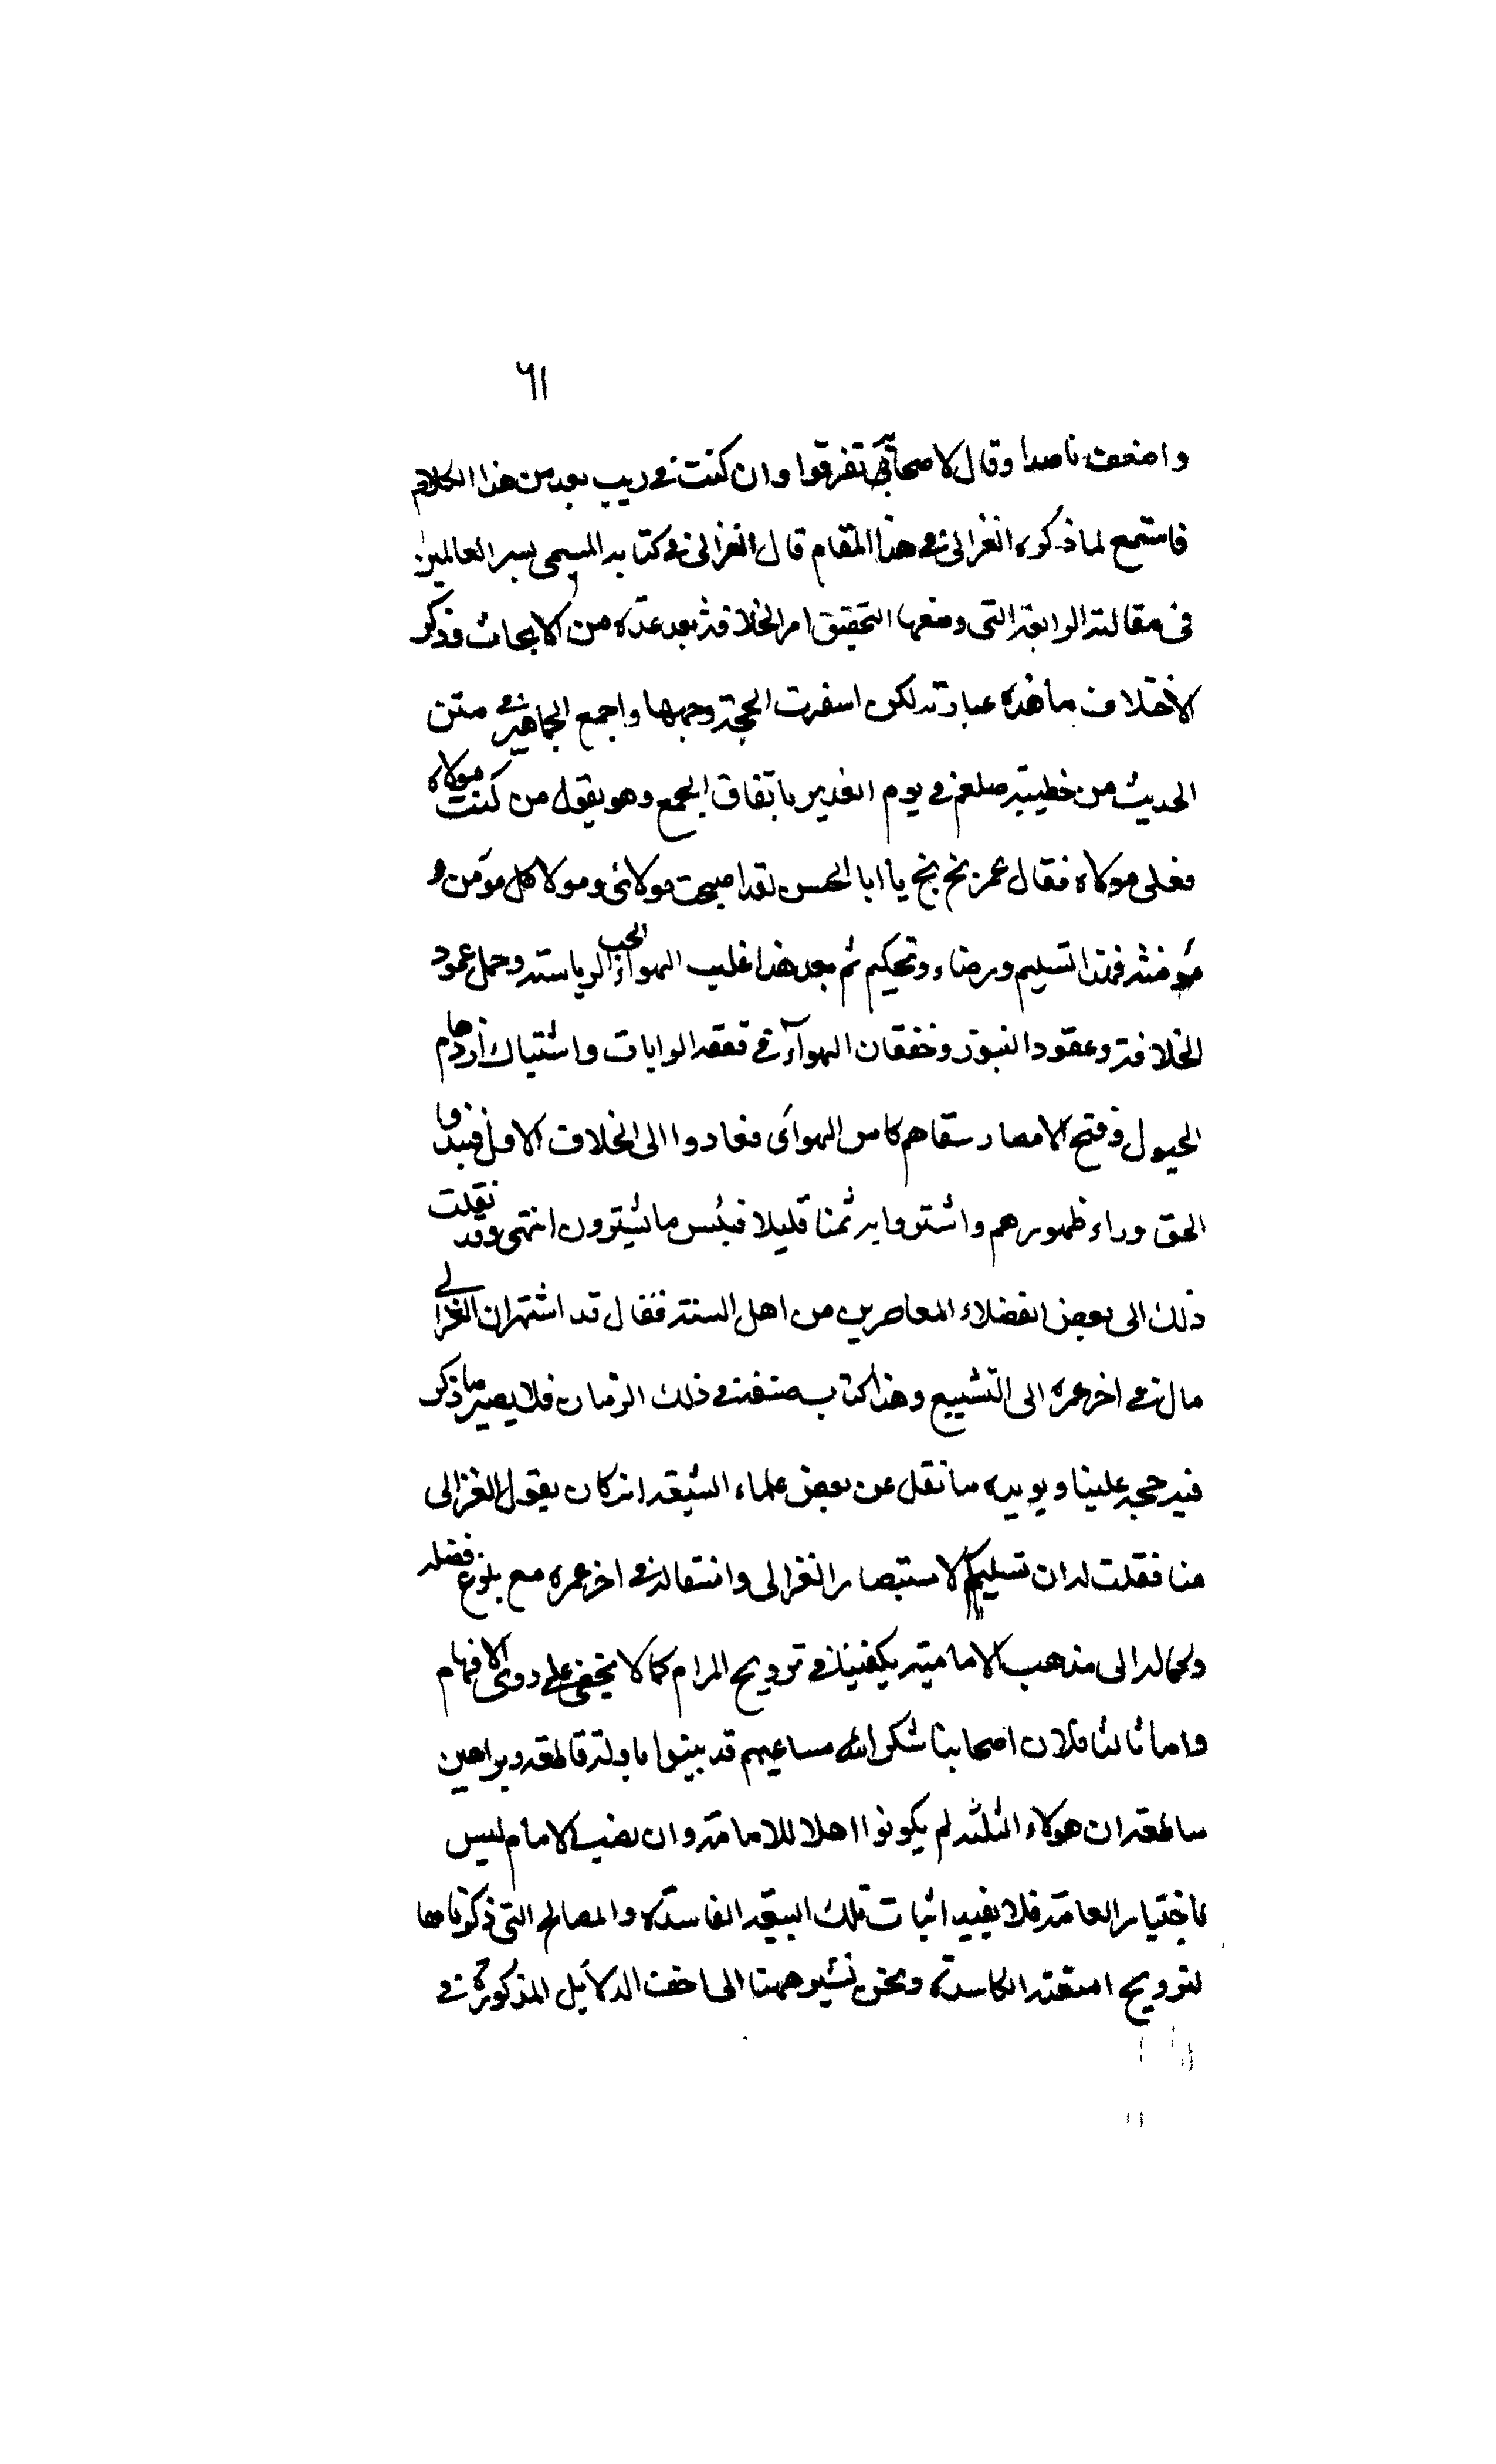 ٦١
واضعف ناصدا وقال لاصحابى تفرقوا وان كنت فى ريب بعد من هذا الكلام
فاستمع لما ذكره الغزالى فى هذا المقام قال الغزالى فى كتابه المسمى بسر العالمين
فى مقالته الرابعة التى وضعها لتحقيق امر الخلافة بعد عدة من الابحاث وذكر
الاختلاف ما هذه عبارته لكن اسفرت الحجة وجهها واجمع الجماهير فى متن
الحديث من خطبته صلعم فى يوم الغدير باتفاق الجمع وهو يقول من كنت مولاه
فعلى مولاه فقال عمر بخ بخ يا ابا الحسن لقد اصبحت مولائى ومولا كل مؤمن و
مؤمنة فهذا تسليم ورضاء وتحكيم ثم بعد هذا غلب الهواء لحب الرياسة وحمل عمود
الخلافة وعقود النبوة وخفقان الهوآء فى قعقعة الرايات واشتباك ازدحام
الخيول وفتح الامصار سقاهم كاس الهوآى فعادوا الى الخلاف الاول فنبذوا
الحق وراء ظهورهم واشتروا به ثمنا قليلا فبئس ما يشترون انتهى وقد نقلت
ذلك الى بعض الفضلاء المعاصرين من اهل السنة فقال قد اشتهر ان الغزالى
مال فى اخر عمره الى التشييع وهذا كتاب صنفه فى ذلك الزمان فلا يصير ما ذكر
فيه حجة علينا ويويده ما نقل عن بعض علماء الشيعة انه كان يقول الغزالى
منا فقلت له ان تسليمكم لاستبصار الغزالى وانتقاله فى اخر عمره مع بلوغ فضله
وكماله الى مذهب الامامية يكفينا فى ترويح المرام كما لا يخفى على ذوى الافهام
واما ثالثا فلان اصحابنا شكر الله مساعيهم قد بينوا بادلة قاطعة وبراهين
ساطعة ان هولاء الثلثة لم يكونوا اهلا للامامة وان نصب الامام ليس
باختيار العامة فلا يفيد اثبات تلك البيعة الفاسدة والمصالح التى ذكرناها
لترويج امتعته الكاسدة ونحن نشير ههنا الى اخف الدلايل المذكورة فى